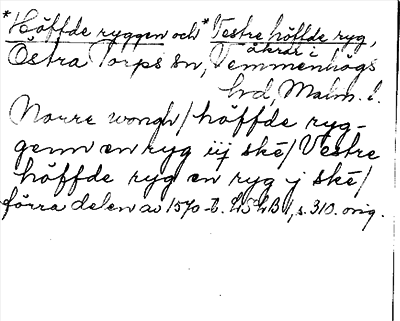 *Höffde ryggen och *Vestre höffde ryg,
åkrar i
Östra Torps sn, Vemmenhögs
hd, Malm. l.
Norre wongh/ höffde ryg-
genn en ryg iij ske/ Vestre
höffde ryg en ryg j ske/
förra delen av 1570 s. 310. orig.